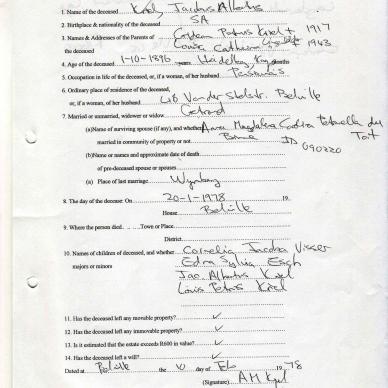 1. Name of the deceased Kriel Jacobus Albertus
2. Birthplace and nationality of the deceased SA
3. Names & Addresses of the Parents of Petrus Kriel + 1917
the deceased Louisa Catherina + 1943
4. Age of the deceased 1-10-1896 years months
5. Occupation in life of the deceased, or, if a woman, of her husband
6. Ordinary place of residence of the deceased,
or, if a woman, of her husband 46 Van der Stelstr. Bellville
7. Married or unmarried, widower or widow Getroud
(a)Name of surviving spouse (if any), and whether Anna Magdalena Petronella du Toit
married in community of property or not ID 090220
(b)Name or names and approximate date of death
of pre-deceased spouse or spouses
(a) Place of last marriage Wynberg
8. The day of the decease: On 20-1-1978 19
House Bellville
9. Where the person died. Town or Place
District
10. Names of children of deceased, and whether Cornelia Jacoba Visser
majors or minors Edna Sylvia Esch
Jac. Albertus Kriel
Louis Petrus Kriel
11. Has the deceased left any movable property? ✓
12. Has the deceased left any immovable property? ✓
13. Is it estimated that the estate exceeds R600 in value? ✓
14. Has the deceased left a will? ✓
Dated at Bellville the 10 day of Feb 1978
(Signature) AM Kriel